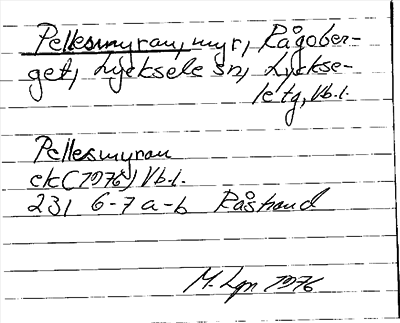 Pellesmyran, myr, Rågober-
get, Lycksele sn, Lyckse-
le tg, Vb.l.
Pellesmyran
ek (1976) Vb.l.
231 6-7 a-b Råstrand
M. Lgn 1976